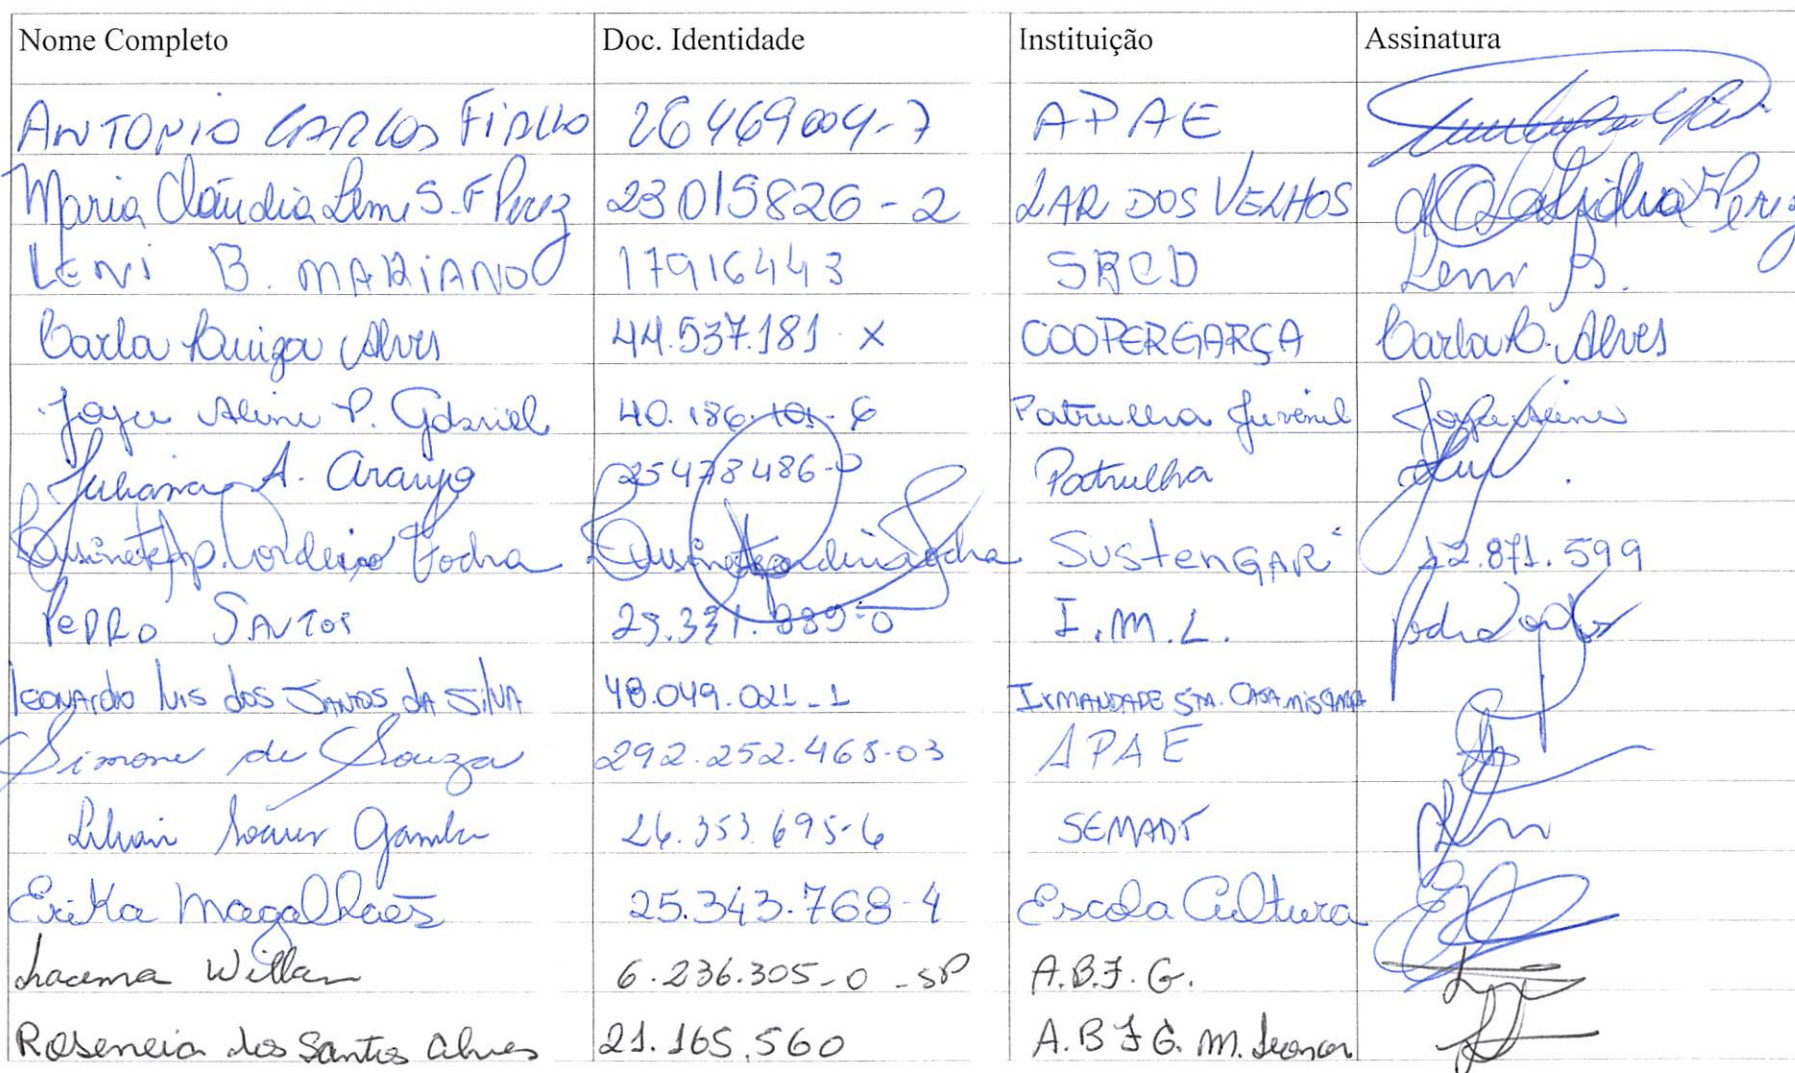 Nome Completo Doc. Identidade Instituição Assinatura
ANTONIO CARLOS FIALHO 26469004-7 APAE
Maria Cláudia S. F Perez 23015826-2 LAR DOS VELHOS
LENI B. MARIANO 17916443 SRCD Leni B.
Carla Alves 44.537.181-X COOPERGARÇA Carla B. Alves
Joyce Aline P. Gabriel 40.186.101-6 Patrulha Juvenil Joyce Aline
Juliana A. Araujo 25478486-0 Patrulha
Ap. Cordeiro SustenGAR 12.871.599
PEDRO SANTOS I.M.L.
LEONARDO LUIS dos SANTOS DA SILVA 48.049.021-1 IRMANDADE STA. CASA
Simone de Souza 292.252.468-03 APAE
Lilian 26.353.695-6 SEMADS
Erika Magalhaẽs 25.343.768-4 Escola Cultura
Iracema 6.236.305-0-SP A.B.J.G.
Roseneia dos Santos Alves 21.165.560 A.B J G. M.